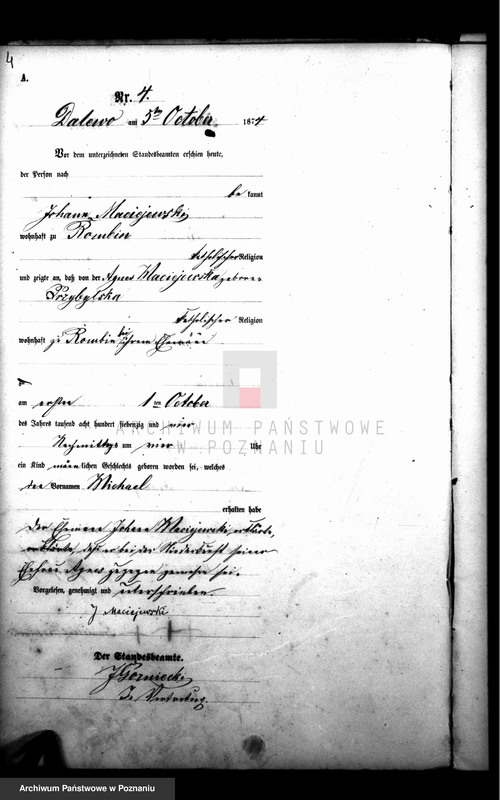 4
A.
Nr. 4.
Dalewo am 5ten October 1874
Vor dem unterzeichneten Standesbeamten erschien heute,
der Person nach
be kannt
Johann Maciejewski
wohnhaft zu Rombin
katholischer Religion
und zeigte an, daß von der Agnes Maciejewska geborene
Przybylska
katholischer Religion
wohnhaft zu Rombin bei ihrem Ehemann
am ersten 1 ten October
des Jahres tausend acht hundert siebenzig und vier
Nachmittags um vier Uhr
ein Kind männlichen Geschlechts geboren worden sei, welches
den Vornamen Michael
erhalten habe
Der Ehemann Johann Maciejewski erklärte,
daß er bei der Niederkunft seiner
Ehefrau Agnes zugegen gewesen sei.
Vorgelesen, genehmigt und unterschrieben
J Maciejewski
Der Standesbeamte.
In Vertretung.
ARCHIWUM PAŃSTWOWE
W POZNANIU
Archiwum Państwowe w Poznaniu